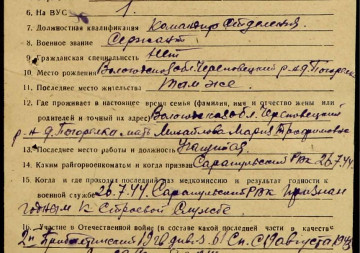 6. На ВУС 1.
7. Должностная квалификация Командир отделения
8. Военное звание Сержант
9. Гражданская специальность нет
10. Место рождения Вологодская обл. Череповецкий р-н д.
11. Последнее место жительства Там же
12. Где проживает в настоящее время семья (фамилия, имя и отчество жены или
родителей и точный их адрес) Вологодская обл. Череповецкий
р-н д. мать Михайлова Мария Трофимовна
13. Последнее место работы и должность учащийся
14. Каким райгорвоенкоматом и когда призван Сарапульский РВК 26.7.44
15. Когда и где проходил последний раз медкомиссию и результат годности к
военной службе 26.7.44. Сарапульский РВК признан
годным к строевой службе
16. Участие в Отечественной войне (в составе какой последней части, в качестве
2й Прибалтийский див. 61 Сп. С 19 августа 194